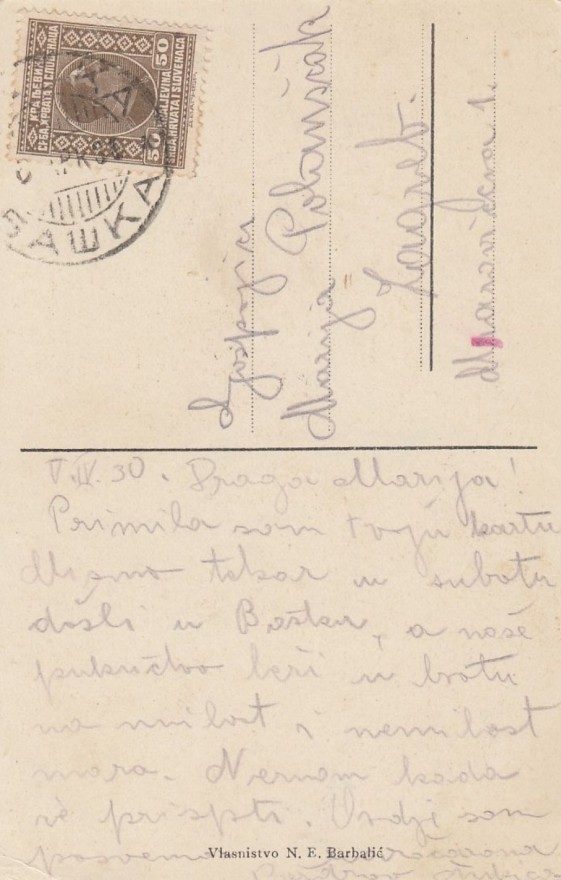 КРАЉЕВИНА
СРБА, ХРВАТА И СЛОВЕНАЦА
50
50
KRALJEVINA
SRBA, HRVATA I SLOVENACA
АШКА
Gospojica
Marija
Zagreb.
1.
V. IV. 30. Draga Marija!
Primila sam tvoju kartu
Mi smo tekar u subotu
došli u Bašku, a naše
pokućtvo leži u brodu
na milost i nemilost
mora. Neznam kada
će prispeti. Ovdje sam
posvema
Vlasnistvo N. E. Barbalić